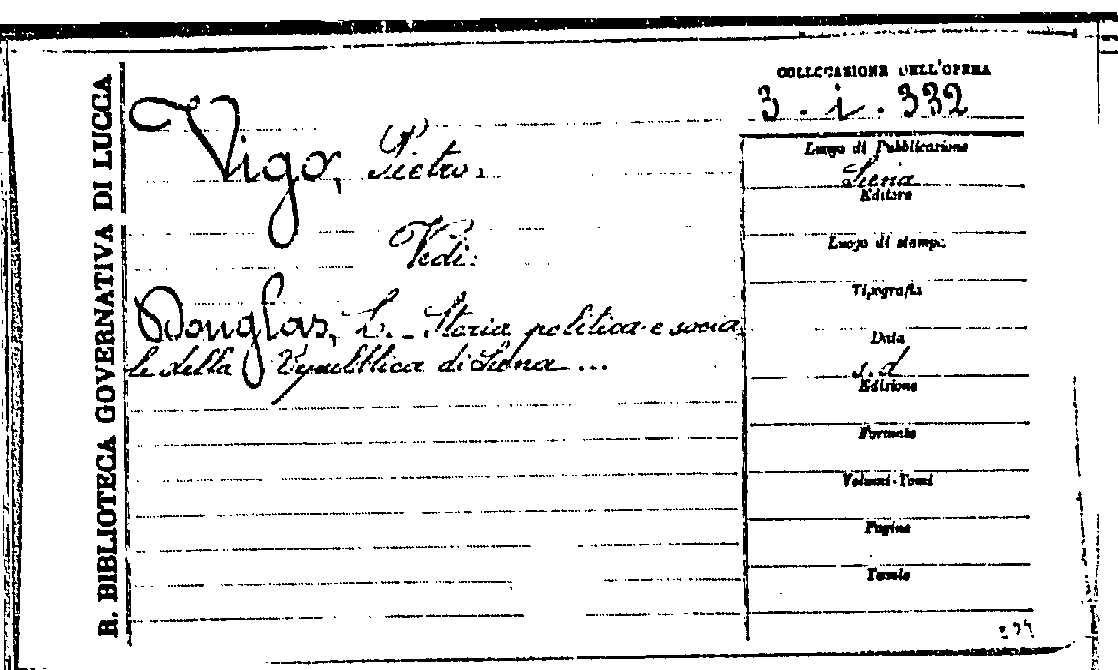 R. BIBLIOTECA GOVERNATIVA DI LUCCA
COLLOCAZIONE DELL'OPERA
3. i. 332
Vigo, Pietro.
Vedi:
Douglas, L. Storia politica e socia
le della Repubblica di Siena ...
Luogo di Pubblicazione
Siena
Editore
Luogo di stampa
Tipografia
Data
s.d
Edizione
Formato
Volumi-Tomi
Pagine
Tavole